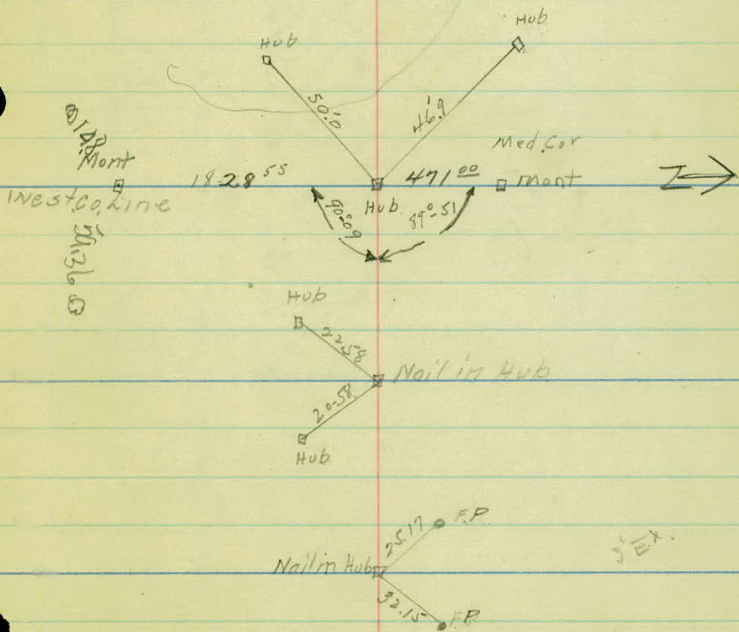 Hub
Hub
50.0
46.9
Med. Cor
Mont
1828 55
471 00
Mont
West Co. Line
Hub
90°-09
89°-51
Hub
22.58
Nail in Hub
20.58
Hub
25.17
F.P.
Nail in Hub
32.15
F.P.